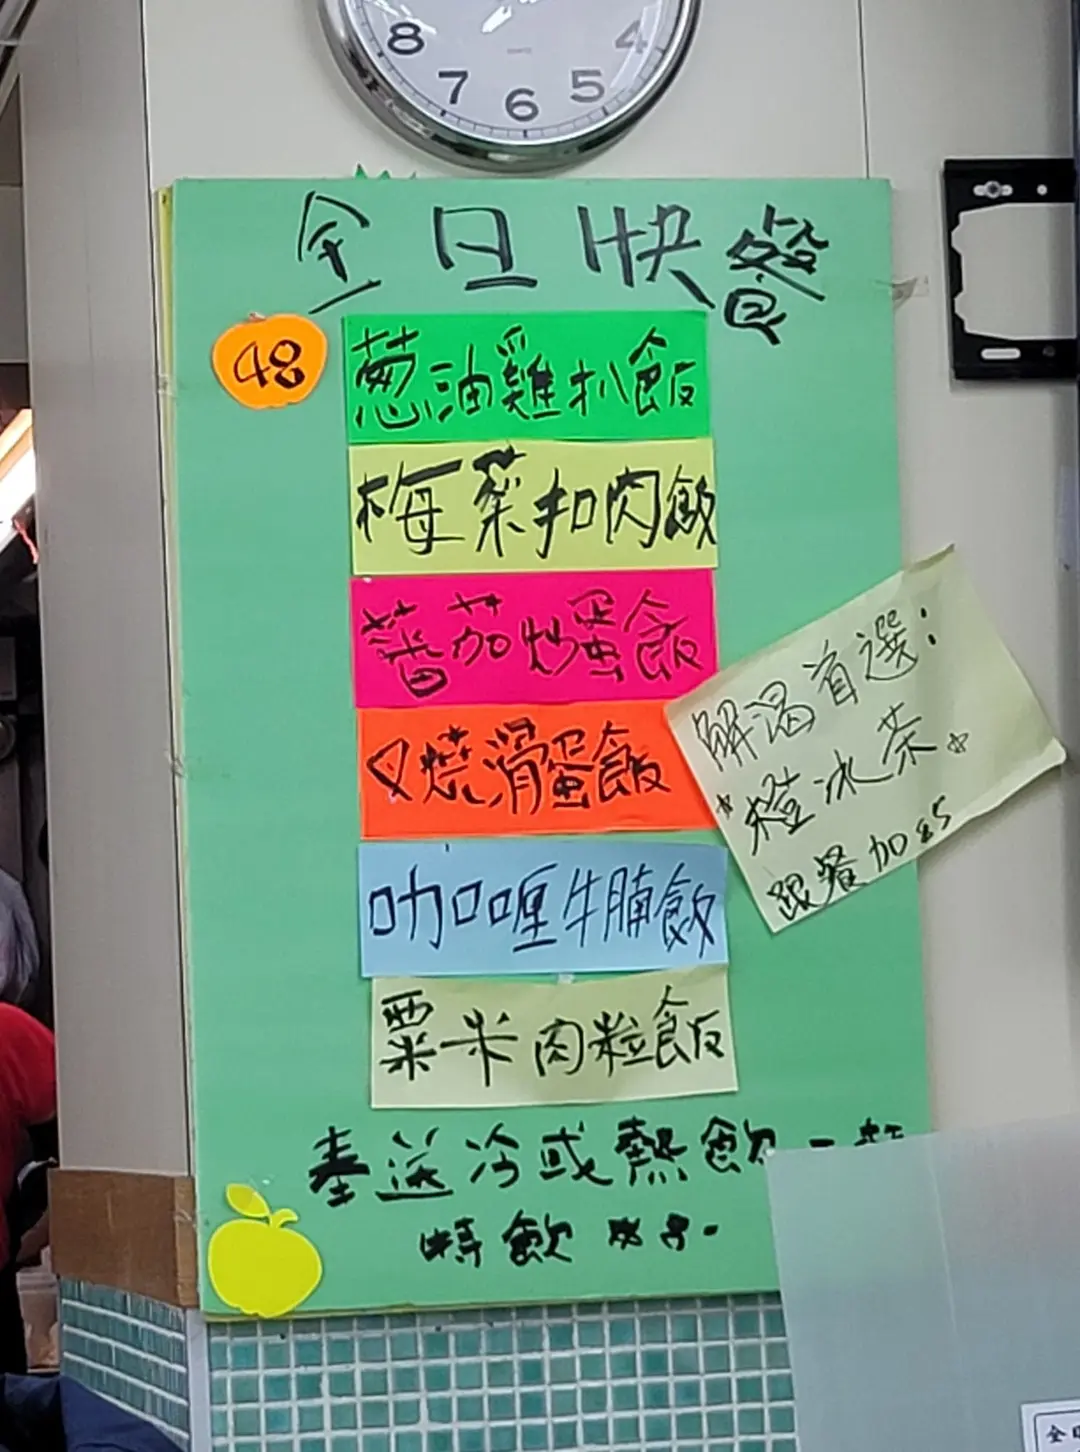 8 7 6 5 4
全日快餐
48
葱油雞扒飯
梅菜扣肉飯
蕃茄炒蛋飯
叉燒滑蛋飯
咖喱牛腩飯
粟米肉粒飯
解渴首選:
*橙冰茶*
跟餐加$5
奉送冷或熱飲一
特飲
全日